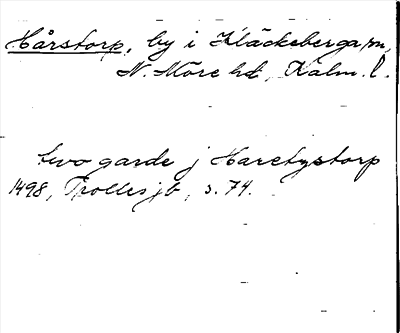 Hårstorp, by i Kläckeberga sn,
N. Möre hd, Kalm. l.
two garde j Haretystorp
1498, Trolles jb, s. 74.